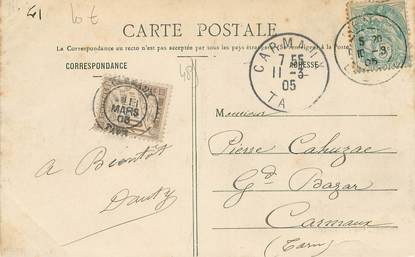 41
lot
CARTE POSTALE
La Correspondance au recto n'est pas acceptée par tous les pays étrangers
CORRESPONDANCE
ADRESSE
CARMAUX
7 55
11 - 3
05
TA
MARS
05
5 20
3
05
Monsieur
Pierre Cahuzac
Gd Bazar
Carmaux
(Tarn)
A Bientôt